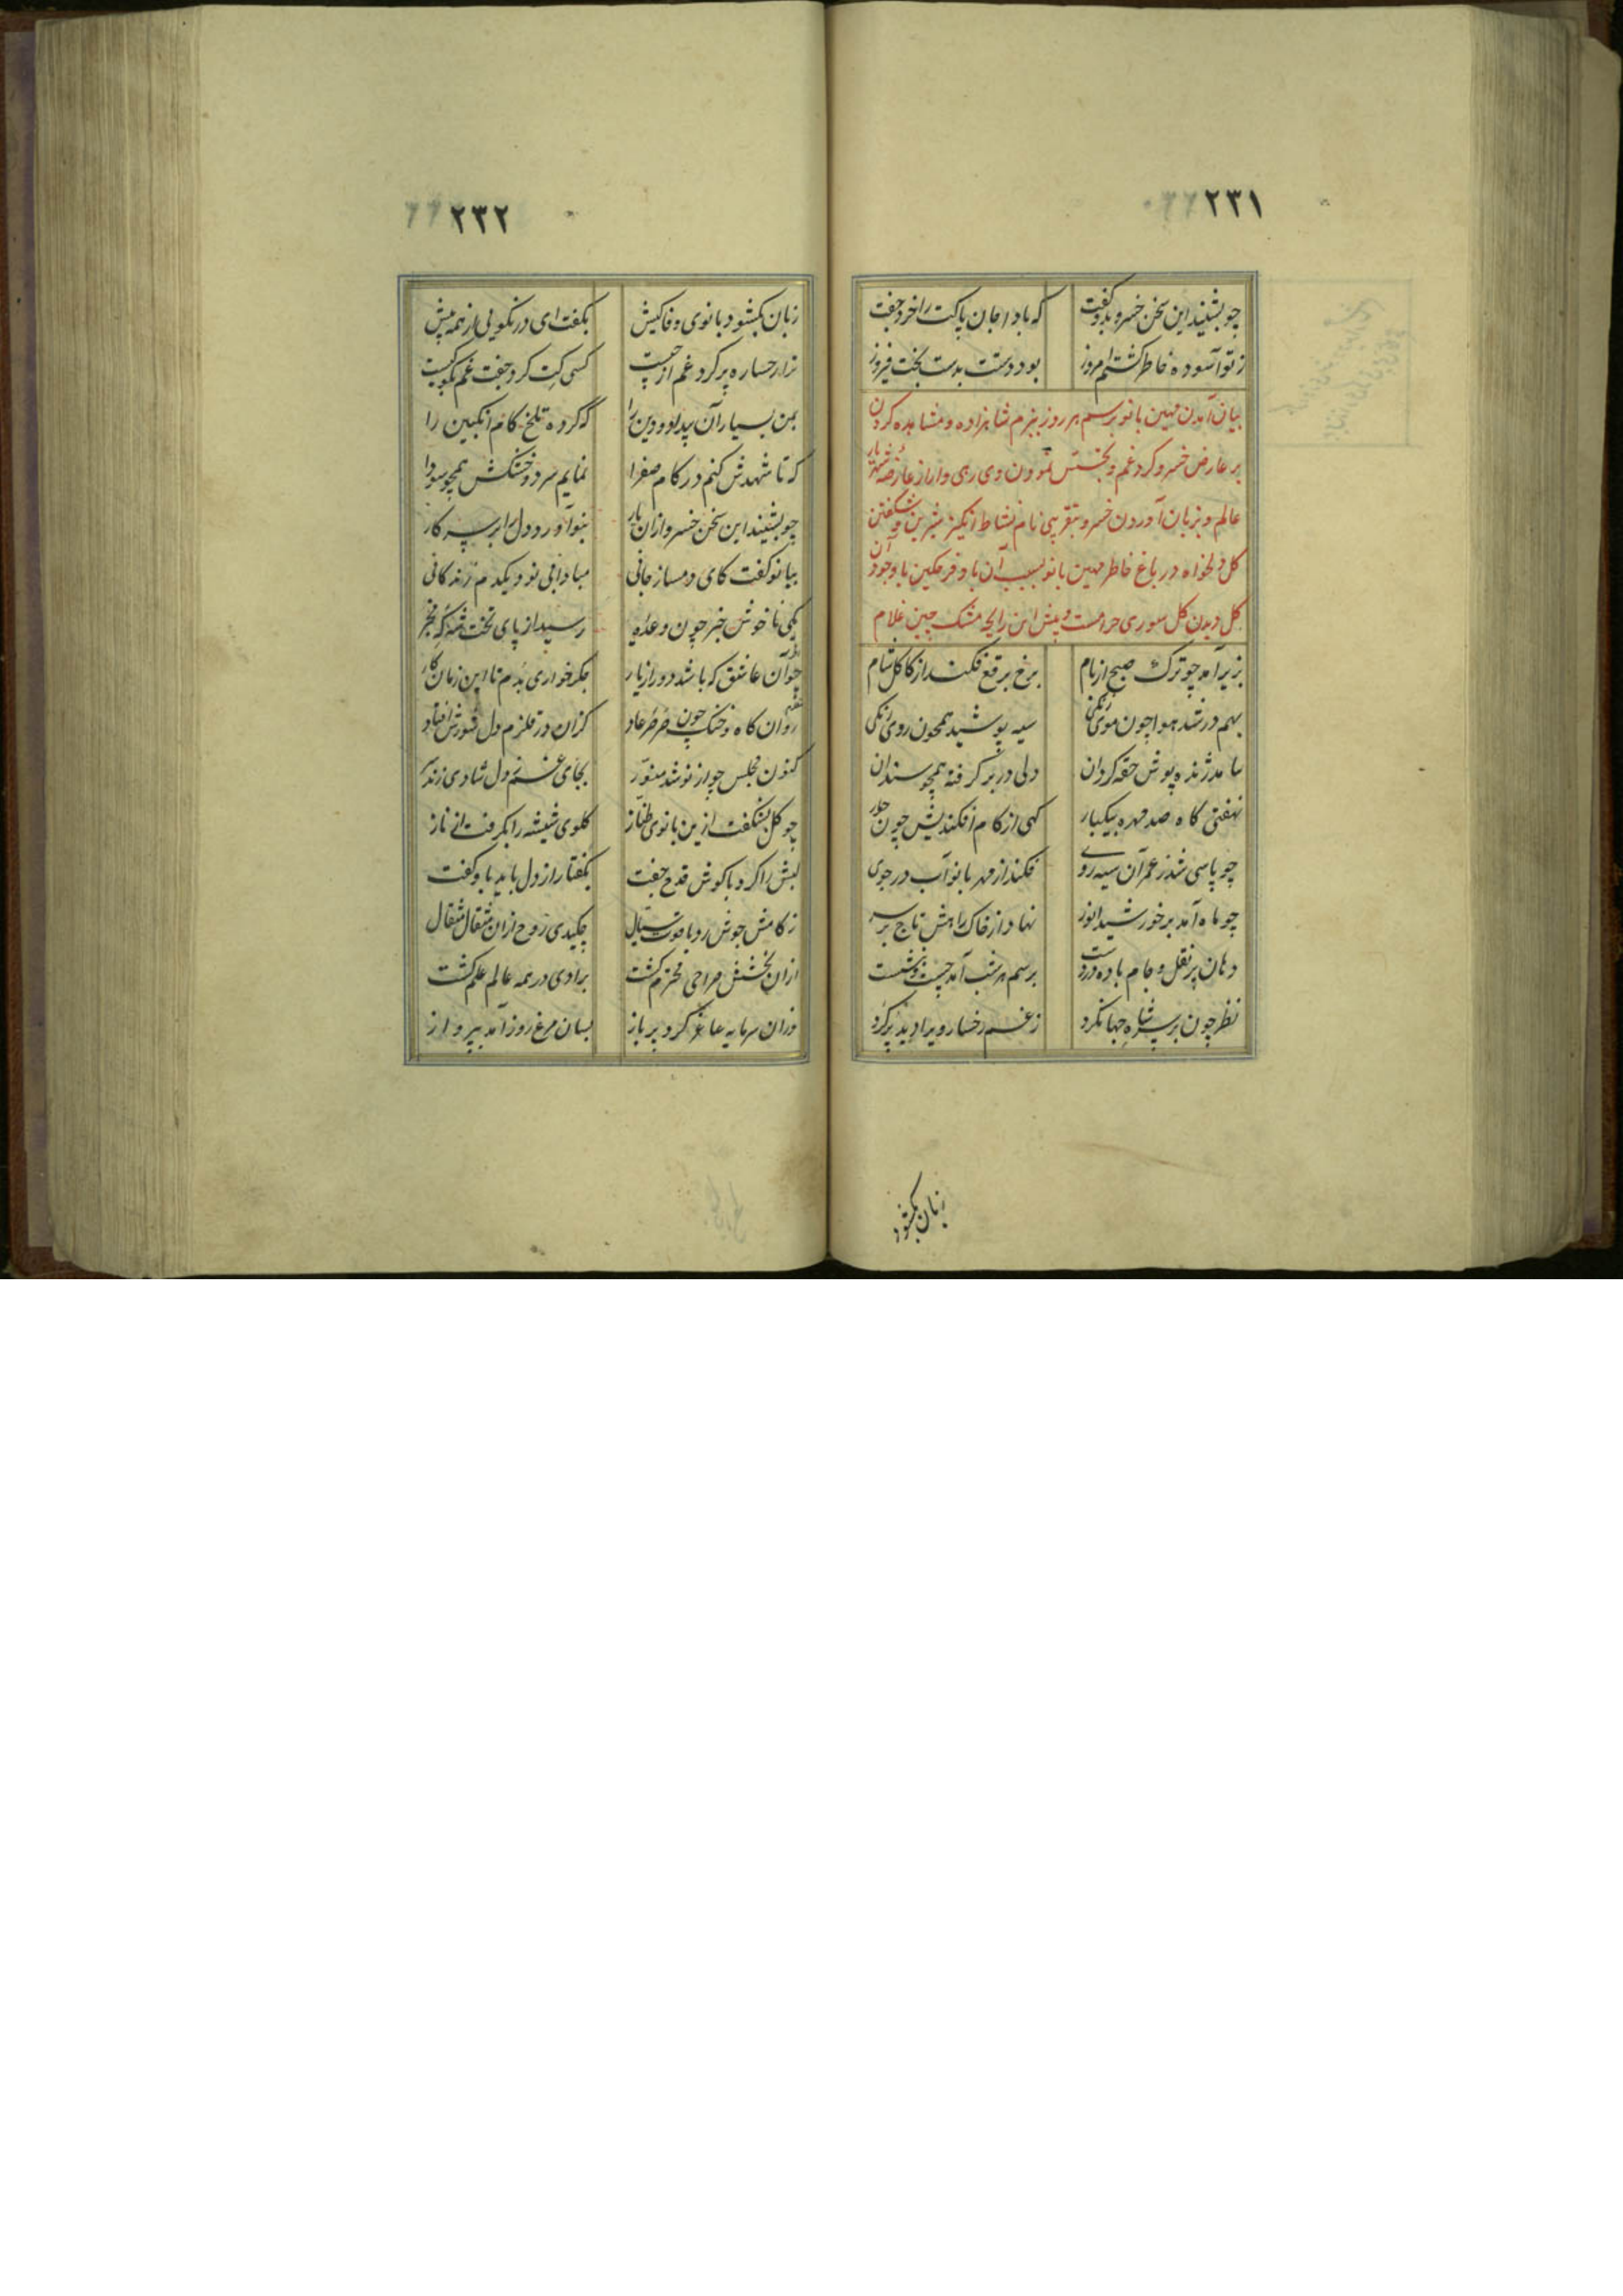 ٢٣١
چو بشنید این سخن خسرو بدو گفت که بادا جان پاکت را خرد جفت
ز تو آسوده خاطر گشتم امروز بود دستت بدست بخت فیروز
بیان آمدن مهین بانو برسم هر روز ببزم شاهزاده و مشاهده کردن
بر عارض خسرو کرد غم و نمودن وی را از عارضه شهریار
عالم و بزبان آوردن خسرو بتقریبی نام نشاط انگیز شیرین و شکفتن
کل دلخواه در باغ خاطر مهین بانو بسبب آن با وجود آن
کل دیدن کل سوری حرامست و پیش این رایحه مشک چین غلام
بزیر آمد چو ترک صبح از بام برخ برقع فکند از کاکل شام
بهم در شد هوا چون موی زنگی سیه پوشید همچون روی زنگی
بیامد ژنده پوش حقه گردان دلی در بر گرفته همچو سندان
نهفتی گاه صد مهره بیکبار گهی از کام افکندیش چون
چو پاسی شد ز عمر آن سیه روی فکند از مهر بانو آب در جوی
چو ماه آمد بر خورشید انور نهاد از خاک راهش تاج بر سر
دهان پر نقل و جام باده در دست برسم هر شب آمد چست و بنشست
نظر چون بر شاه جهان کرد ز غم رخسار ویرا دید پر گرد
زبان بگشود
٢٣٢
زبان بگشود بانوی وفا کیش بگفت ای در نکویی از همه پیش
ترا رخساره پر گرد غم از چیست کسی کت کرد جفت غم بگو کیست
بمن بسپار آن بیدل و دین را که کرده تلخ کام انگبین را
که تا شهدش کنم در کام صفرا نمایم سرد و خشکش همچو سودا
چو بشنید این سخن خسرو از آن یار آورد دل را بر سر کار
ببانو گفت کای دمساز جانی مبادا بی تو و یکدم زندگانی
یکی ناخوش خبر چون وعده رسید از پای تخت
چو آن عاشق که باشد دور از یار جگر خواری بدم تا این زمان کار
روان کاه و خشک چون صرصر عاد کزان در قلزم دل شورش افتاد
کنون مجلس چو از تو شد منور بجای غم ز دل شادی زند
چو گل بشکفت ازین بانوی طناز گلوی شیشه را بگرفت از ناز
لبش را کرد با گوش قدح جفت بگفتا راز دل باید باو گفت
ز کامش جوش زد یاقوت سیال چکیدی روح از آن مثقال مثقال
از آن بخشش صراحی محترم گشت برادی در همه عالم علم گشت
وزان سرمایه ساغر کرد پر باز بسان مرغ روز آمد بپرواز